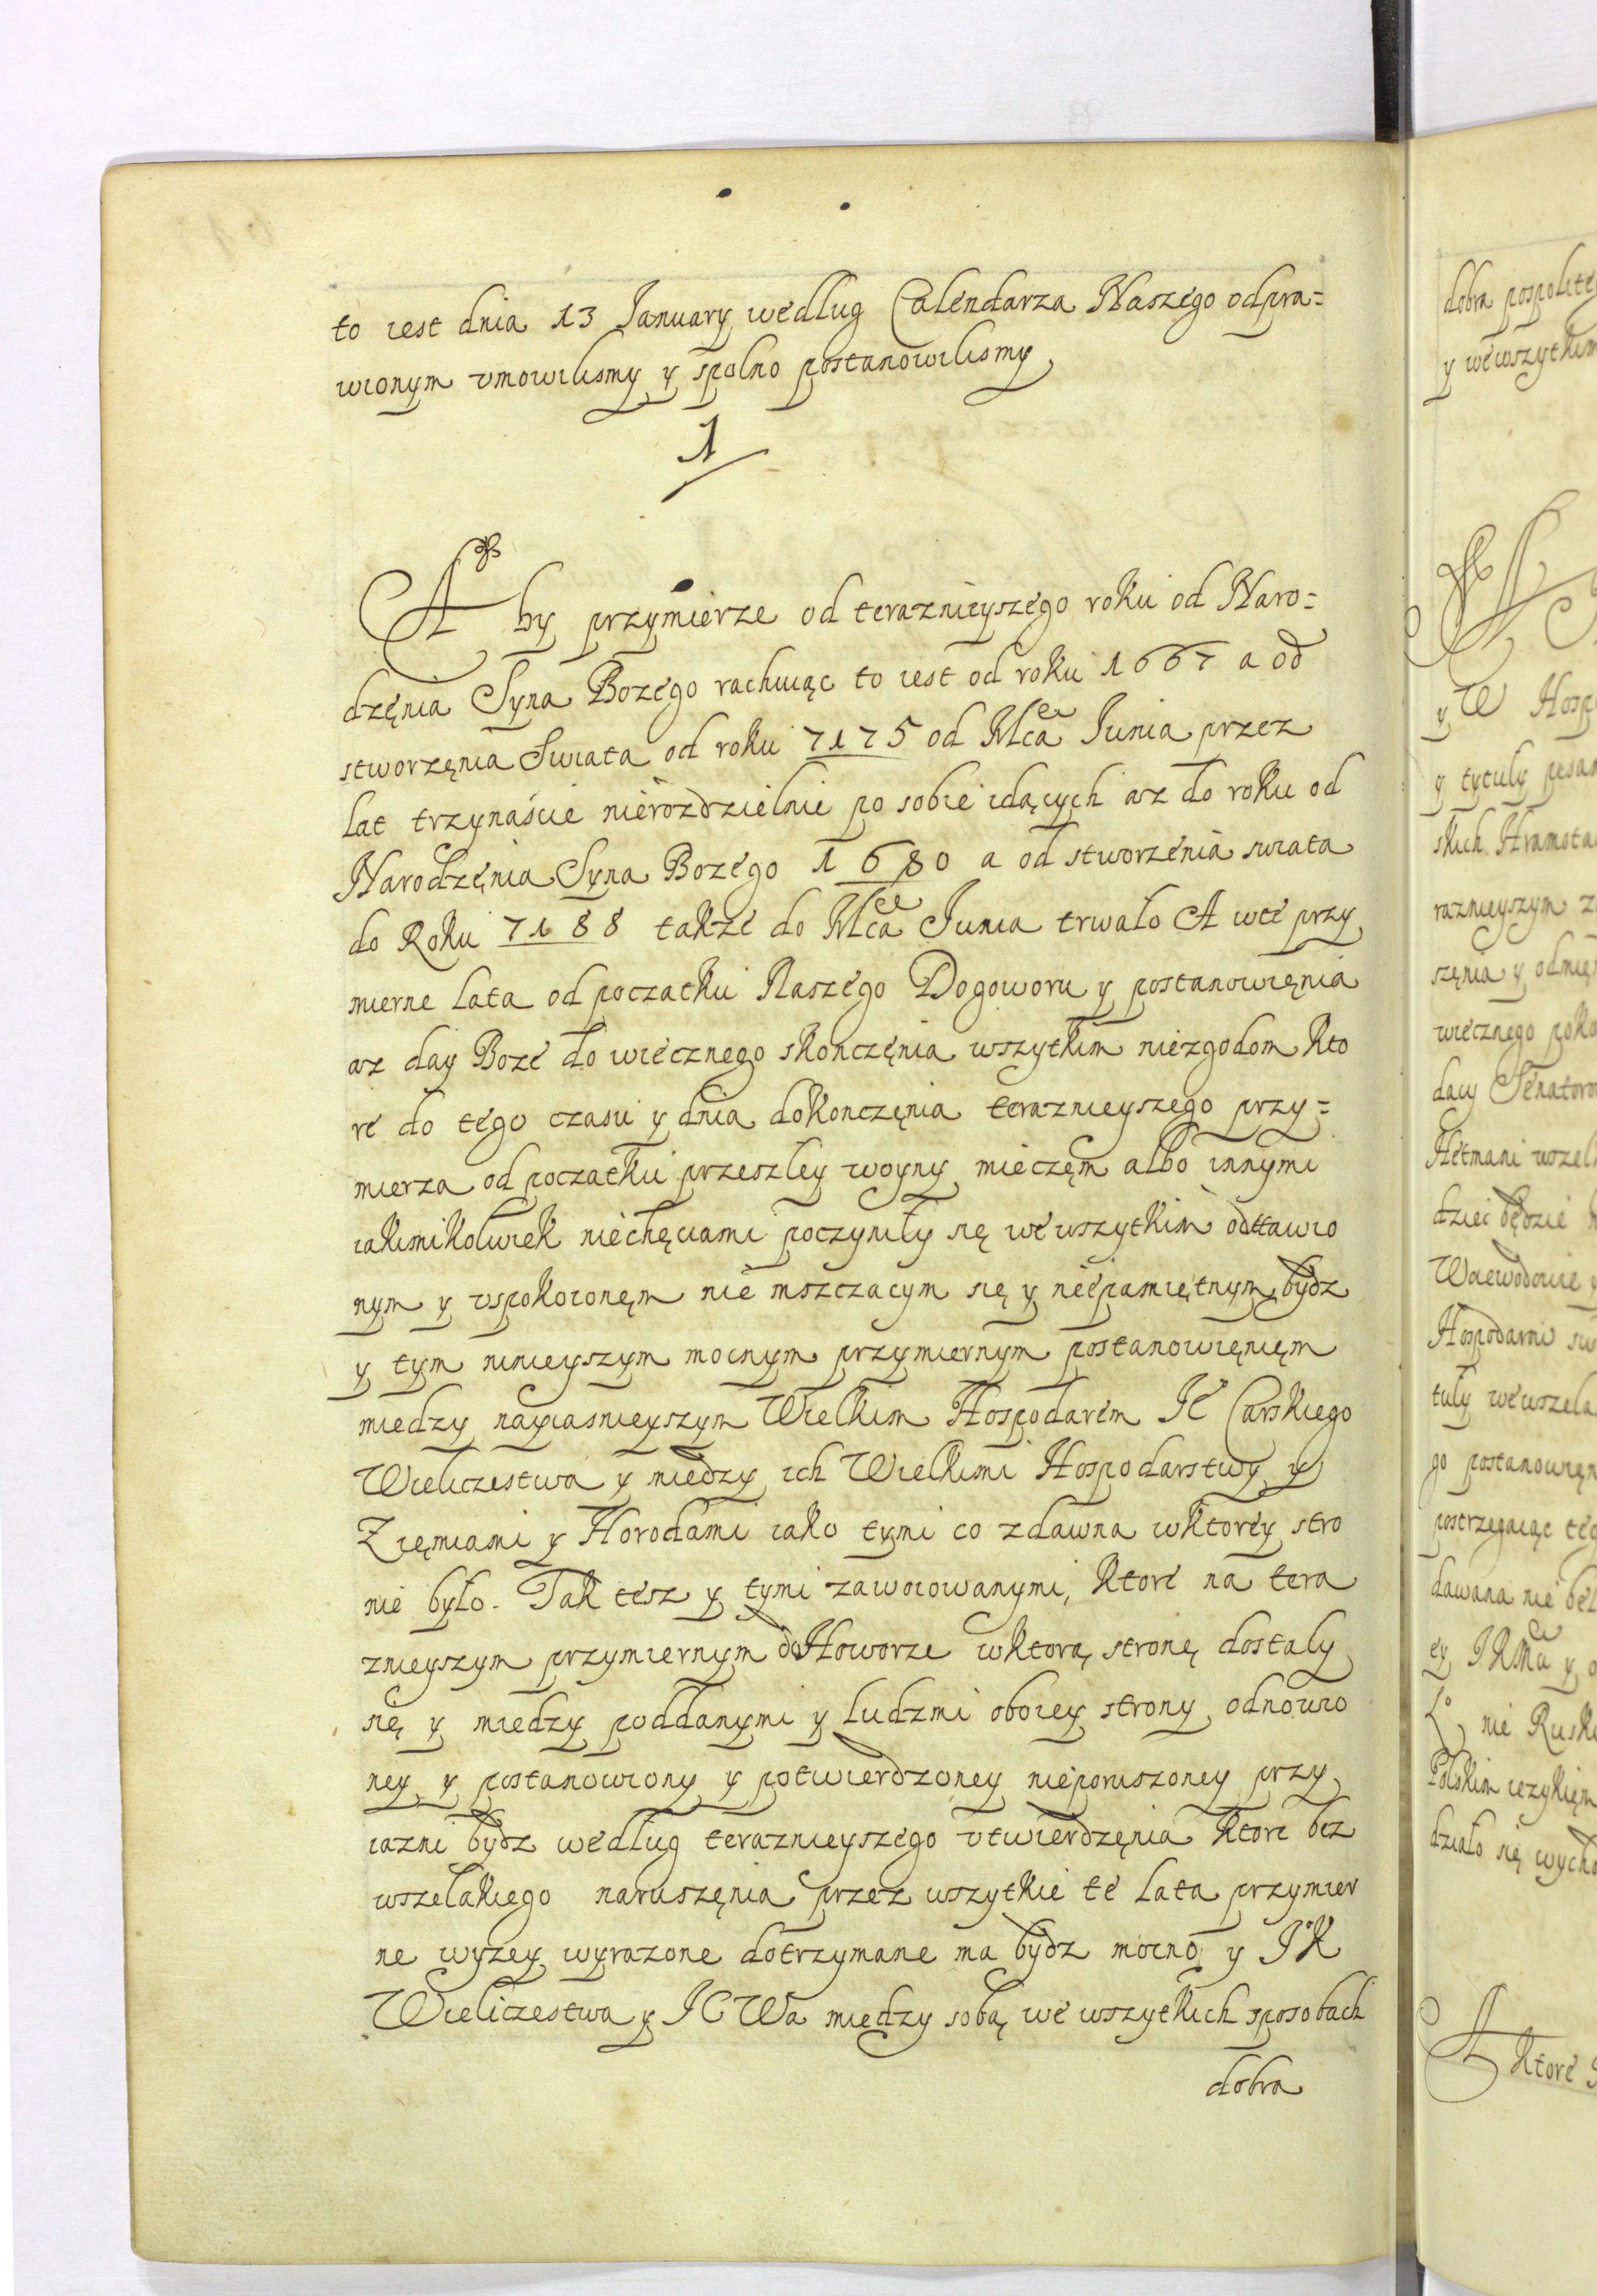 to iest dnia 13 January według Calendarza Naszego odpra=
wionym vmowilismy y spolno postanowilismy
1
Aby przymierze od teraznieyszego roku od Naro=
dzęnia Syna Bozego rachuiąc to iest od roku 1667 a od
stworzęnia Swiata od roku 7175 od Mca Junia przez
lat trzynaście nierozdzielnie po sobie idących asz do roku od
Narodzęnia Syna Bozego 1680 a od stworzenia swiata
do Roku 7188 takze do Mca Junia trwało A wte przy
mierne lata od początku Naszego Dogoworu y postanowięnia
asz day Boze do wiecznego skonczęnia wszytkim niezgodom kto
re do tego czasu y dnia dokonczęnia teraznieyszego przy=
mierza od początku przeszley woyny mieczęm albo innymi
iakimikolwiek niechęciami poczyniły się we wszytkim odstawio
nym y vspokoionęm nie mszczacym się y niepamiętnym bydz
y tym ninieyszym mocnym przymiernym postanowięnięm
miedzy nayiasnieyszym Wielkim Hospodarem JC Carskiego
Wieliczestwa y miedzy ich Wielkimi Hospodarstwy y
Zięmiami y Horodami iako tymi co zdawna wktorey stro
nie było. Tak tesz y tymi zawoiowanymi, ktore na tera
znieyszym przymiernym doHoworze wktorą stronę dostały
się y miedzy poddanymi y ludzmi oboiey strony odnowio
ney y postanowiony y potwierdzoney nieporuszoney przy
iazni bydz według teraznieyszego vtwierdzęnia ktore bez
wszelakiego naruszęnia przez wszytkie te lata przymier
ne wyzey wyrazone dotrzymane ma bydz mocno y JK
Wieliczestwa y JC Wa miedzy sobą we wszytkich sposobach
dobra
dobra pospolite
y we wszytkim
y W Hosp
y tytuły pisan
skich Hramota
raznieyszym z
szęnia y odmię
wiecznego poko
dacy Senatoro
Hetmani wszel
dziei będzie
Woiewodowie y
Hospodarni sw
tuły we wszela
go postanowięn
postrzegaiąc teg
dawana nie bel
ey JKMa y o
nie Ruski
Polskim ięzykięm
działo się wycho
A ktore